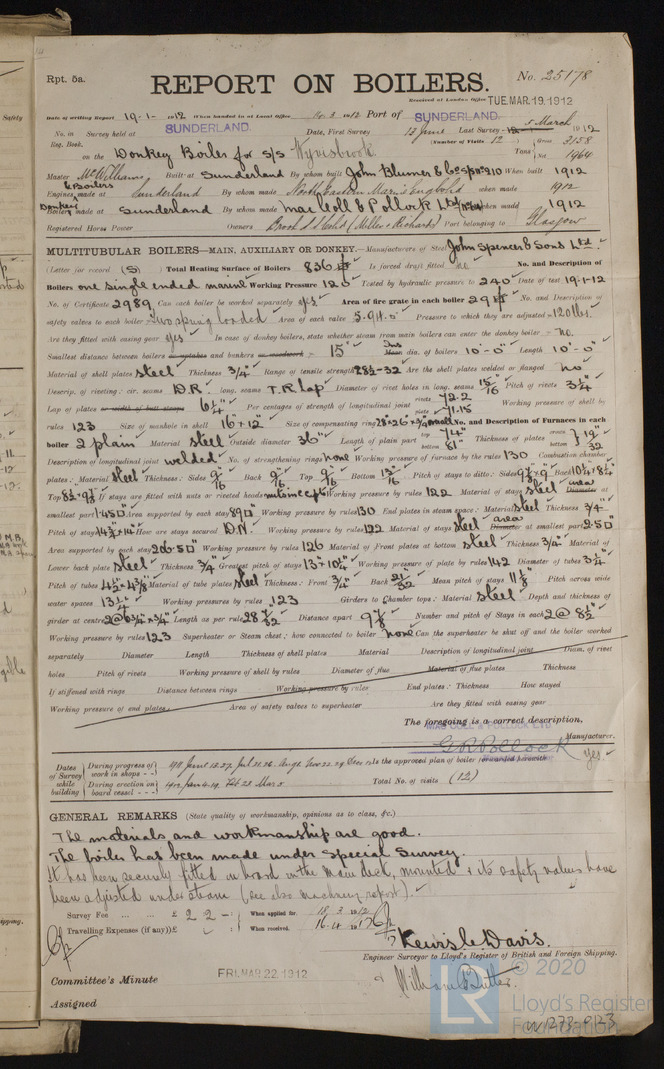 Rpt. 5a.
REPORT ON BOILERS.
No. 25178
Received at London Office TUE. MAR. 19. 1912
Date of writing Report 19-1-1912 When handed in at Local Office 3 1912 Port of SUNDERLAND
No. in Survey held at SUNDERLAND Date, First Survey 13 June Last Survey 5 March 1912
Reg. Book. (Number of Visits 12) Gross 3158
on the Donkey Boiler for S/S Wyvisbrook Tons Net 1964
Master McWilliams Built at Sunderland By whom built John Blumer & Co S/S No 210 When built 1912
Engines & Boilers made at Sunderland By whom made North Eastern Marine Eng Co Ld when made 1912
Donkey Boiler made at Sunderland By whom made MacColl & Pollock Ltd when made 1912
Registered Horse Power Owners Brook S S Co Ld (Miller & Richards) Port belonging to Glasgow
MULTITUBULAR BOILERS—MAIN, AUXILIARY OR DONKEY.—Manufacturers of Steel John Spencer & Sons Ltd.
(Letter for record (S) Total Heating Surface of Boilers 836 Is forced draft fitted no No. and Description of
Boilers one single ended marine Working Pressure 120 Tested by hydraulic pressure to 240 Date of test 19-1-12
No. of Certificate 2989 Can each boiler be worked separately yes Area of fire grate in each boiler 29 No. and Description of
safety valves to each boiler Two spring loaded Area of each valve 5.94 Pressure to which they are adjusted 120 lbs.
Are they fitted with easing gear yes In case of donkey boilers, state whether steam from main boilers can enter the donkey boiler no.
Smallest distance between boilers or uptakes and bunkers or woodwork 15" Mean dia. of boilers 10'-0" Length 10'-0"
Material of shell plates steel Thickness 3/4" Range of tensile strength 28½-32 Are the shell plates welded or flanged no
Descrip. of riveting: cir. seams D.R. long. seams T.R. Lap Diameter of rivet holes in long. seams 15/16 Pitch of rivets 3¼"
Lap of plates or width of butt straps 6¼" Per centages of strength of longitudinal joint rivets 72.2 plate 71.15 Working pressure of shell by
rules 123 Size of manhole in shell 16"×12" Size of compensating ring No. and Description of Furnaces in each
boiler 2 plain Material steel Outside diameter 36" Length of plain part top 74" bottom 81" Thickness of plates crown bottom 19/32
Description of longitudinal joint welded No. of strengthening rings none Working pressure of furnace by the rules 130 Combustion chamber
plates: Material steel Thickness: Sides 9/16 Back 9/16 Top 9/16 Bottom 13/16 Pitch of stays to ditto: Sides Back
Top If stays are fitted with nuts or riveted heads Working pressure by rules 122 Material of stays steel Diameter at
smallest part 1.45 Area supported by each stay 89 Working pressure by rules 130 End plates in steam space: Material steel Thickness 3/4
Pitch of stays How are stays secured D.N. Working pressure by rules 122 Material of stays steel area Diameter at smallest part 2.50
Area supported by each stay Working pressure by rules 126 Material of Front plates at bottom steel Thickness 3/4" Material of
Lower back plate steel Thickness 3/4 Greatest pitch of stays Working pressure of plate by rules 142 Diameter of tubes 3¼"
Pitch of tubes 4½" × 4 3/8" Material of tube plates steel Thickness: Front 3/4" Back 21/32 Mean pitch of stays 11 1/8 Pitch across wide
water spaces 13¼" Working pressures by rules 123 Girders to Chamber tops: Material steel Depth and thickness of
girder at centre 2@6¾" × ¾" Length as per rule Distance apart Number and pitch of Stays in each 2 @ 8½"
Working pressure by rules 123 Superheater or Steam chest; how connected to boiler none Can the superheater be shut off and the boiler worked
separately Diameter Length Thickness of shell plates Material Description of longitudinal joint Diam. of rivet
holes Pitch of rivets Working pressure of shell by rules Diameter of flue Material of flue plates Thickness
If stiffened with rings Distance between rings Working pressure by rules End plates: Thickness How stayed
Working pressure of end plates Area of safety valves to superheater Are they fitted with easing gear
The foregoing is a correct description,
MAC COLL & POLLOCK LTD.
G. R. Pollock Manufacturer.
Dates of Survey while building During progress of work in shops Is the approved plan of boiler forwarded herewith yes
During erection on board vessel Total No. of visits (12)
GENERAL REMARKS (State quality of workmanship, opinions as to class, &c.)
The materials and workmanship are good.
The boiler has been made under special survey.
It has been securely fitted on board on the main deck, mounted & its safety valves have
been adjusted under steam (see also machinery report).
Survey Fee ... ... £ 2 2 - When applied for 18. 3. 1912
Travelling Expenses (if any) £ When received. 16.4.1912
Lewis C. Davis.
Engineer Surveyor to Lloyd's Register of British and Foreign Shipping.
& William Butler.
Committee's Minute FRI. MAR 22 1912
Assigned
© 2020
LR
Lloyd's Register
Foundation
W1273-0123